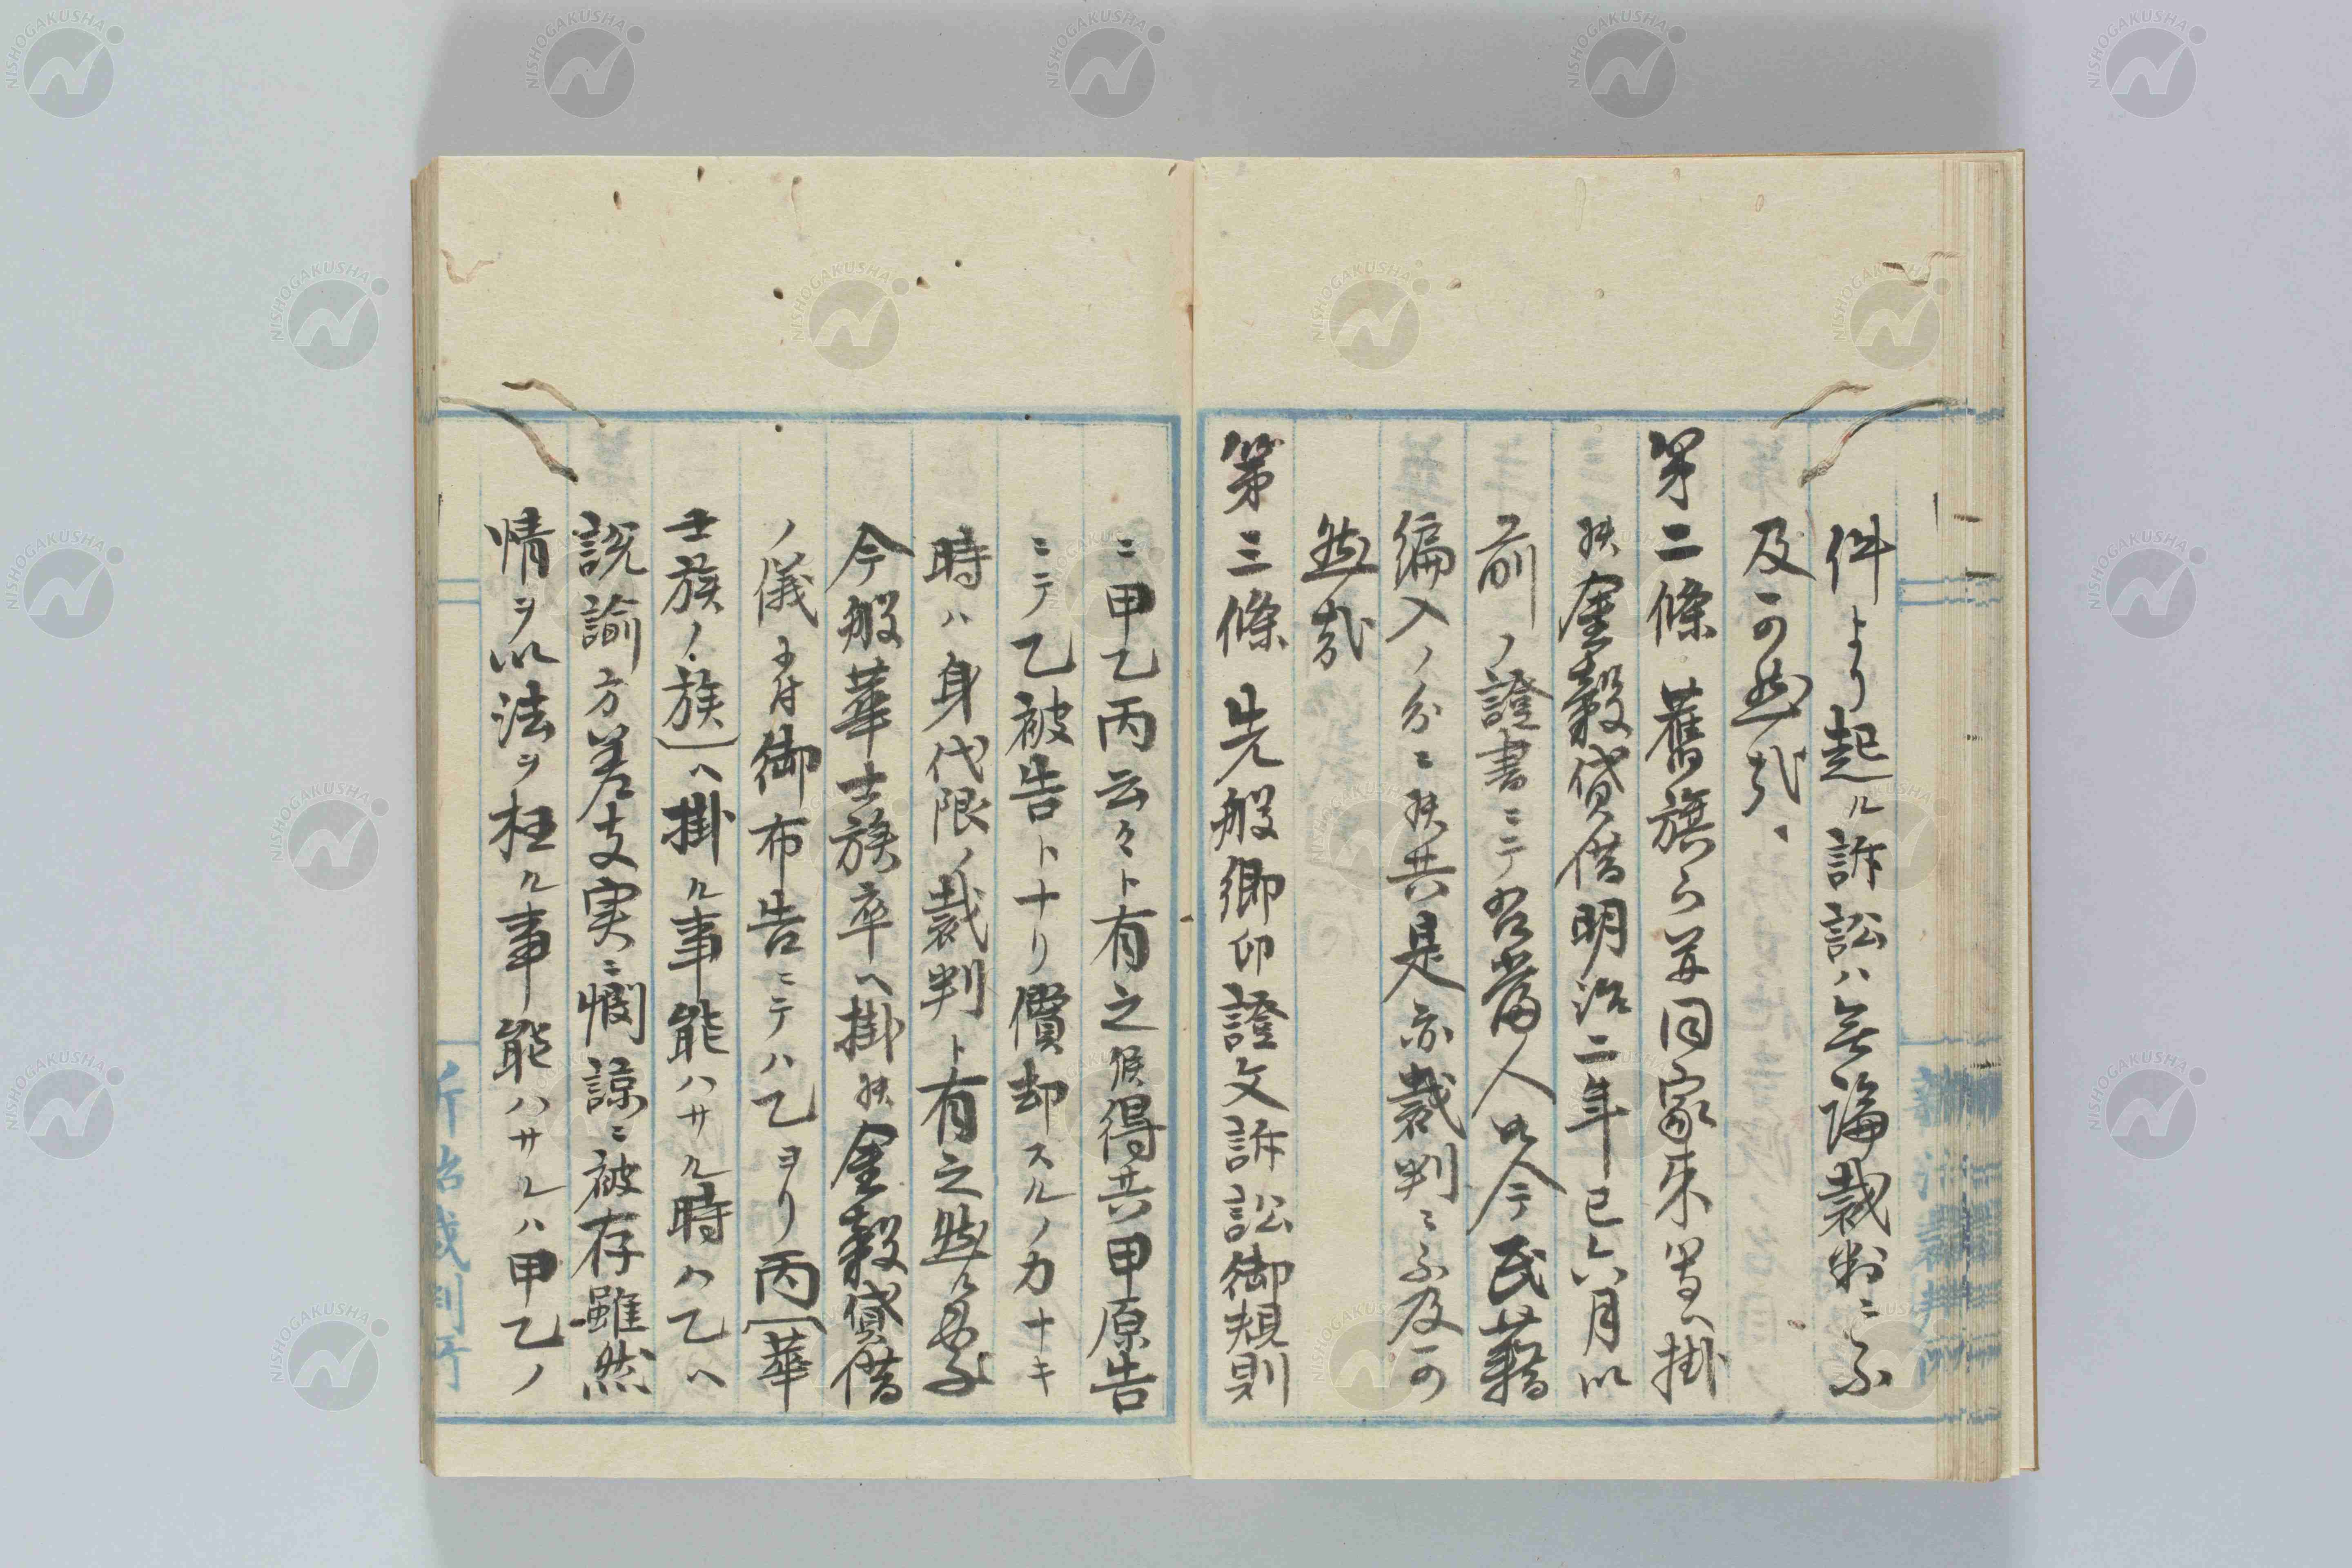 件より起ル訴訟ハ無論裁判ニ不
及可然哉、
第二條 舊旗下并同家来等ヘ掛
候金穀貸借明治二年巳六月以
前ノ證書ニテ名當人以今民籍
編入ノ分ニ候共是亦裁判ニ不及可
然哉
第三條 先般御印證文訴訟御規則
ニ甲乙丙云々ト有之候得共甲原告
ニテ乙被告トナリ償却スルノ力ナキ
時ハ身代限ノ裁判ト有之然ル處
今般華士族卒ヘ掛候金穀貸借
ノ儀ニ付御布告ニテハ乙ヨリ丙(華
士族ノ族)ヘ掛ル事能ハサル時ハ乙ヘ
説諭方差支実ニ憫諒ニ被存雖然
情ヲ以法ヲ枉ル事能ハサルハ甲乙ノ